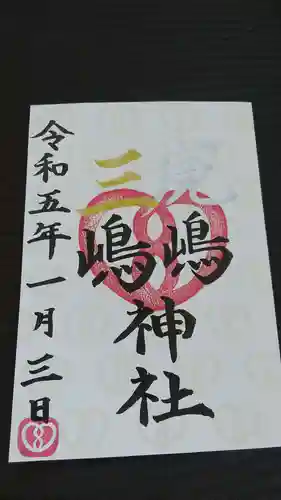 嶋
三嶋
神社
令和五年一月三日